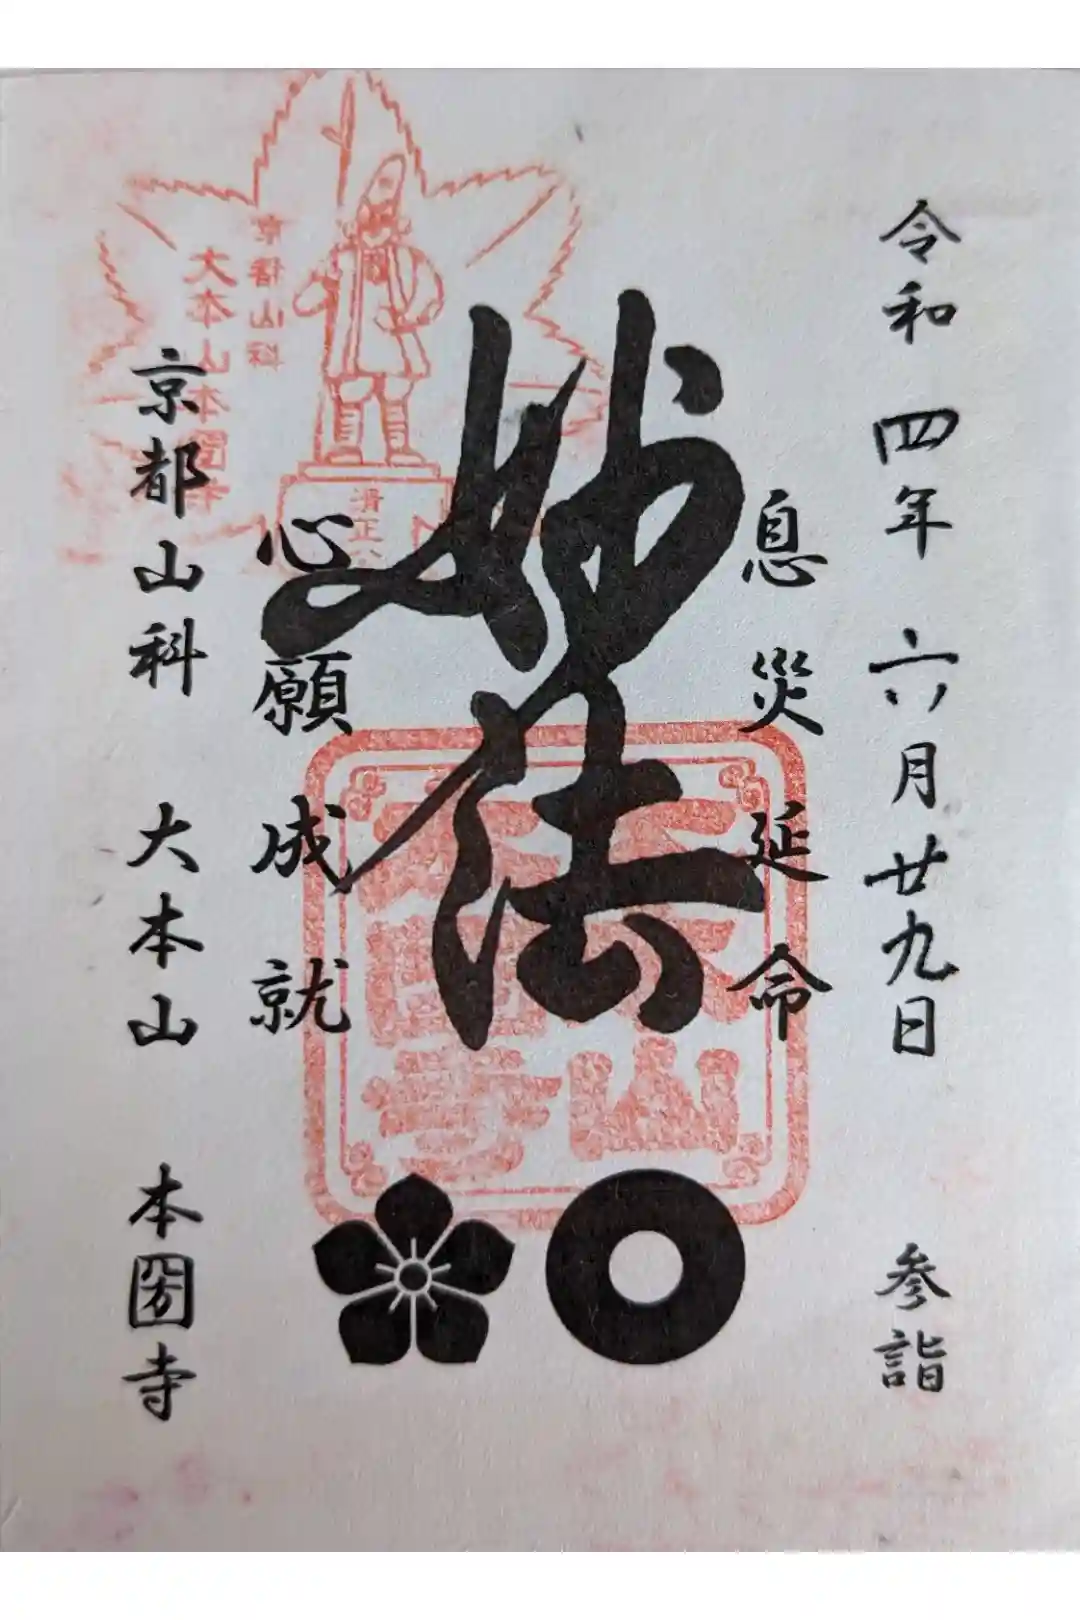 令和四年六月廿九日 参詣
息災延命
妙法
心願成就
京都山科 大本山 本圀寺
京都山科
大本山本圀寺
清正
大本山
本圀寺